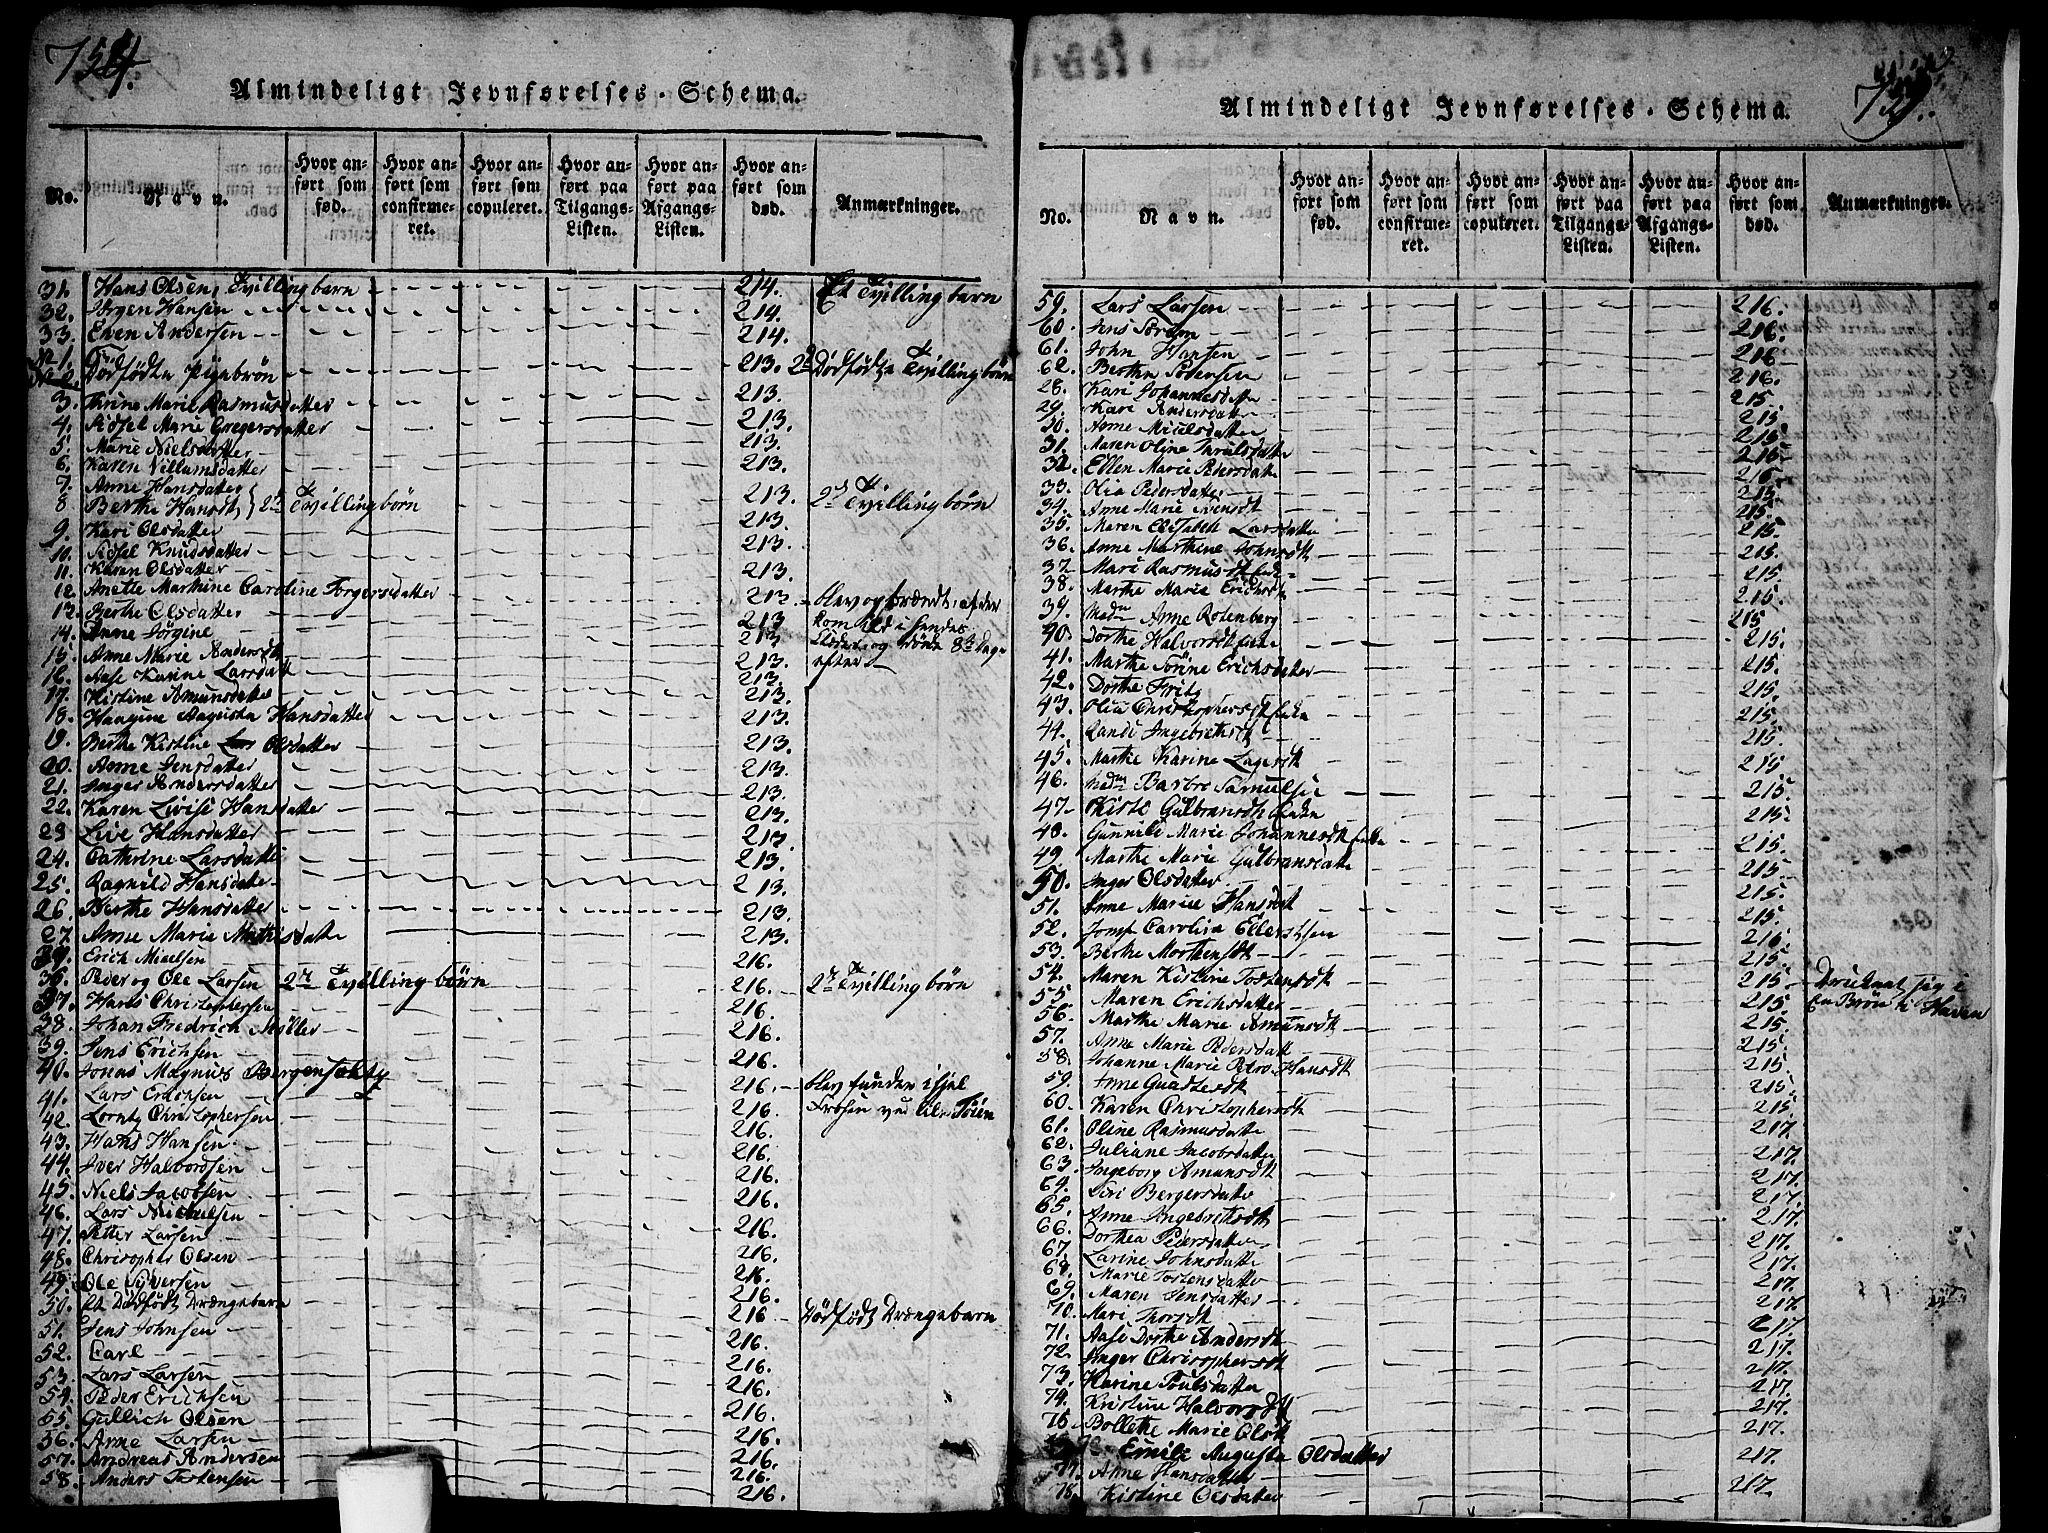 Almindeligt Jevnførelses-Schema.
No. Navn. Hvor anført som fød. Hvor anført som confirmeret. Hvor anført som copuleret. Hvor anført paa Tilgangs-Listen. Hvor anført paa Afgangs-Listen. Hvor anført som død. Anmærkninger.
31. Hans Olsen, Tvillingbarn 214. Et Tvillingbarn
32. Jörgen Hansen 214.
33. Even Andersen 214.
Dödfödte Pigebrön 213. 2 Dödfödte Tvillingbörn
3. Thrine Marie Rasmusdatter 213.
4. Sidsel Marie Gregersdatter 213.
5. Marie Nielsdatter 213.
6. Karen Villumsdatter 213.
7. Anne Hansdatter
8 Berthe Hansdt 2de Tvillingbörn 213. 2de Tvillingbörn
9. Kari Olsdatter 213.
10. Sidsel Knudsdatter 213.
11. Karen Olsdatter 213.
12. Anette Marthine Caroline Torgersdatter 213. blev opbrændt, af der
13. Berthe Olsdatter 213 kom Ild i hendes
14. Anne Jörgine 213 Klæder og döde 8de Dag
15. Anne Marie Andersdt 213. efter
16. Aase Karine Larsdatt 213.
17. Kistine Amunsdatter 213.
18. Hangine Augusta Hansdatter 213.
19. Berthe Kistine Olsdatter 213.
20. Anne Jensdatter 213.
21. Inger Andersdatter 213.
22. Karen Livise Hansdatter 213.
23 Live Hansdatter 213.
24. Cathrine Larsdatte 213.
25. Ragnild Hansdatte 213.
26. Berthe Hansdatter 213.
27. Anne Marie Mathisdatte 213.
Erich Mielsen 216.
36. Peder og Ole Larsen 2de Tvillingbörn 216. 2de Tvillingbörn
37. Hans Christophersen 216.
38. Johan Fredrich Møller 216.
39. Jens Erichsen 216.
40. Jonas Magnus 216. blev funden ihjel
41. Lars Erichsen 216. Frosen ved
42. Lorntz Christophersen 216.
43. Hans Hansen 216.
44. Iver Halvorsen 216.
45. Niels Jacobsen 216.
46. Lars Nielsen 216.
47. Petter Larsen 216.
48. Chrisopher Olsen 216.
49. Ole Syversen 216.
50. Et Dödfödt Drængebarn 216 Dödfödt Drængebarn
51. Jens Johnsen 216.
52. Carl 216.
53. Lars Larsen 216.
54. Peder Erichsen 216.
55. Gullich Olsen 216.
56. Arne Larsen 216.
57. Andreas Andersen 216.
58. Anders Tostensen 216.
Almindeligt Jevnførelses-Schema.
No. Navn. Hvor anført som fød. Hvor anført som confirmeret. Hvor anført som copuleret. Hvor anført paa Tilgangs-Listen. Hvor anført paa Afgangs-Listen. Hvor anført som død. Anmærkninger.
59. Lars Larsen 216.
60. Jens 216.
61. John Hansen 216
62. Berthe Sörensen 216.
28. Kari Johannesdatte 215
29. Kari Andersdatte 215
30. Anne Nielsdatter 215
31. Maren Oline Trulsdatter 215
32. Ellen Marie Petersdatte 215
33. Olia Pedersdatter 215.
34. Anne Marie Svensdt 215.
35. Maren Elisabeth Larsdatter 215.
36. Anne Marthine Johnsdt 215.
37 Mari Rasmusdt Enke 215.
38. Marthe Marie Erichsdt 215.
39. Mdm Anne Rosenberg 215
40. Dorthe Halvorsdt Enke 215.
41. Marthe Sörine Erichsdatter 215.
42. Dorthe Fritz 215.
43. Olia Christophersdt Enke 215.
44. Randi Ingebrethsdt 215.
45. Marthe Karine Lagesdt 215
46. Mdm Barbro Samuelsen 215.
47. Kisti Gulbransdt Enke 215.
48. Gunnild Marie Johannesdt Enke 215.
49 Marthe Marie Gulbransdatte 215.
50. Inger Olsdatter 215.
51. Anne Marie Hansdt 215.
52. Jomf Carolina 215
53. Berthe Mortensdt 215
54. Maren Kistine Tostensdt 215. Druknet sig i
55 Maren Erichsdatter 215. en Brön i Haven
56. Marthe Marie Amunsdt 215.
57. Anne Marie Pedersdatt 215.
58 Johanne Marie Hansdt 215.
59. Anne 215.
60. Karen Christophersdt 215.
61. Oline Rasmusdatte 217.
62. Juliane Jacobsdatter 217.
63. Ingeborg Amunsdt 217.
64. Siri Bergersdatte 217.
65. Anne Ingebrethsdt 217.
66. Dorthea Pedersdatter 217.
67. Larine Johnsdatte 217.
68. Marie Tostensdatte 217.
69. Maren Jensdatter 217.
70. Mari Thorsdt 217.
71. Aase Dorthe Andersdt 217.
72. Inger Chrisophersdt 217.
73. Karine Poulsdatter 217.
74. Kristine Halvorsdt 217.
75. Bollette Marie Olsdt 217.
Emilie Augusta Olsdatter 217.
77. Anne Hansdatter
78. Kistine Olsdatter 217.